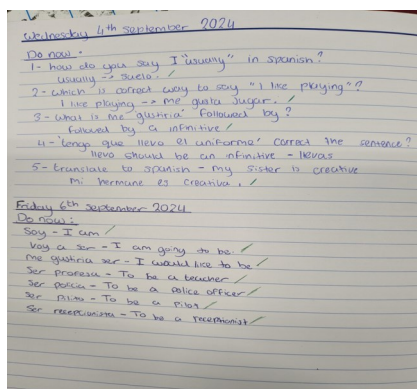 Wednesday 4th september 2024
Do now:
1- how do you say I "usually" in spanish?
usually → suelo.
2- which is correct way to say "I like playing"?
I like playing → me gusta jugar.
3- what is me gustiria followed by?
followed by a infinitive
4- 'tengo que llevo el uniforme' correct the sentence?
llevo should be an infinitive - llevas
5- translate to spanish - my sister is creative
mi hermane es creativa.
Friday 6th september 2024
Do now:
Soy - I am
Voy a ser - I am going to be.
me gustiria ser - I would like to be
Ser profesa - To be a teacher
Ser policia - To be a police officer
Ser piloto - To be a pilot
Ser recepcionista - To be a receptionist